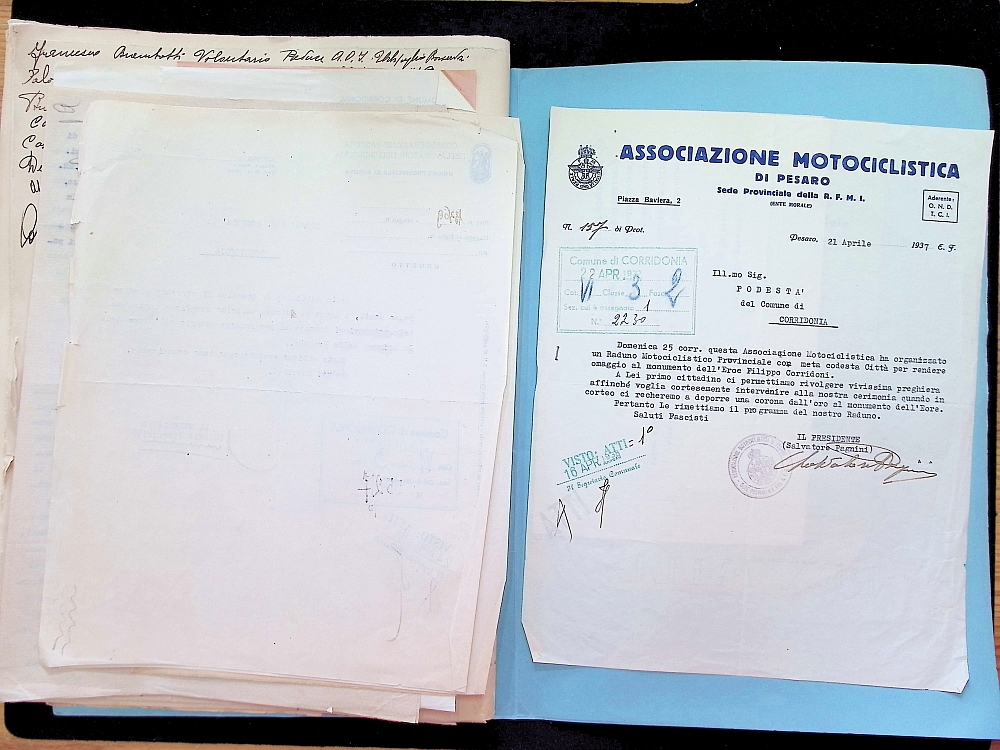 Francesco Volontario Reduce A.O.I.
ASSOCIAZIONE MOTOCICLISTICA
DI PESARO
Sede Provinciale della R. F. M. I.
(ENTE MORALE)
Piazza Baviera, 2
Aderente:
O. N. D.
T. C. I.
N. 157 di Prot.
Pesaro, 21 Aprile 1937 E. F.
Comune di CORRIDONIA
22 APR. 1937
Cat. VI Classe 3 Fasc. 2
Sez. cui è assegnato 1
N.° 2230
Ill.mo Sig.
PODESTA'
del Comune di
CORRIDONIA
Domenica 25 corr. questa Associazione Motociclistica ha organizzato
un Raduno Motociclistico Provinciale con meta codesta Città per rendere
omaggio al monumento dell'Eroe Filippo Corridoni.
A Lei primo cittadino ci permettiamo rivolgere vivissima preghiera
affinchè voglia cortesemente intervenire alla nostra cerimonia quando in
corteo ci recheremo a deporre una corona dall'oro al monumento dell'Eore.
Pertanto Le rimettiamo il programma del nostro Raduno.
Saluti Fascisti
IL PRESIDENTE
(Salvatore Pagnini)
VISTO: ATTI = 1°
16 APR. 1938
Il Segretario Comunale